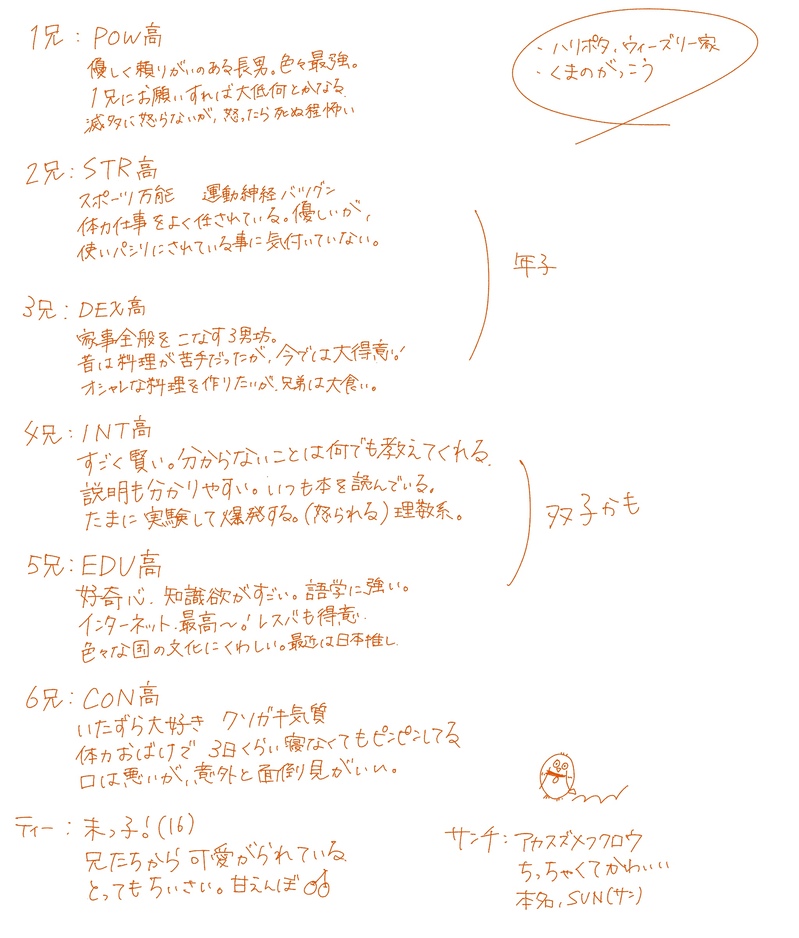 1兄：POW高
優しく頼りがいのある長男。色々最強。
1兄にお願いすれば大低何とかなる
滅多に怒らないが、怒ったら死ぬ程怖い
・ハリポタ、ウィーズリー家
・くまのがっこう
2兄：STR高
スポーツ万能 運動神経バツグン
体力仕事をよく任されている。優しいが、
使いパシリにされている事に気付いていない。
年子
3兄：DEX高
家事全般をこなす3男坊。
昔は料理が苦手だったが、今では大得意！
オシャレな料理を作りたいが、兄弟は大食い。
4兄：INT高
すごく賢い。分からないことは何でも教えてくれる。
説明も分かりやすい。いつも本を読んでいる。
たまに実験して爆発する。(怒られる)理数系。
双子かも
5兄：EDU高
好奇心、知識欲がすごい。語学に強い。
インターネット、最高〜！レスバも得意、
色々な国の文化にくわしい。最近は日本推し
6兄：CON高
いたずら大好き クソガキ気質
体力おばけで 3日くらい寝なくてもピンピンしてる
口は悪いが、意外と面倒見がいい。
ティー：末っ子！(16)
兄たちから可愛がられている
とってもちいさい。甘えんぼ
サンチ：アカスズメフクロウ
ちっちゃくてかわいい
本名、SUN(サン)